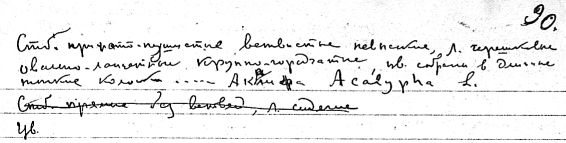 90.
Стб. прижато-пушистые ветвистые невысокие, л. черешковые
овально-ланцетные крупно-городчатые, цв. собраны в длинные
тонкие колоски ..... Акалифа Acalypha L.
Стб. прямые без ветвей, л. сидячие
Цв.